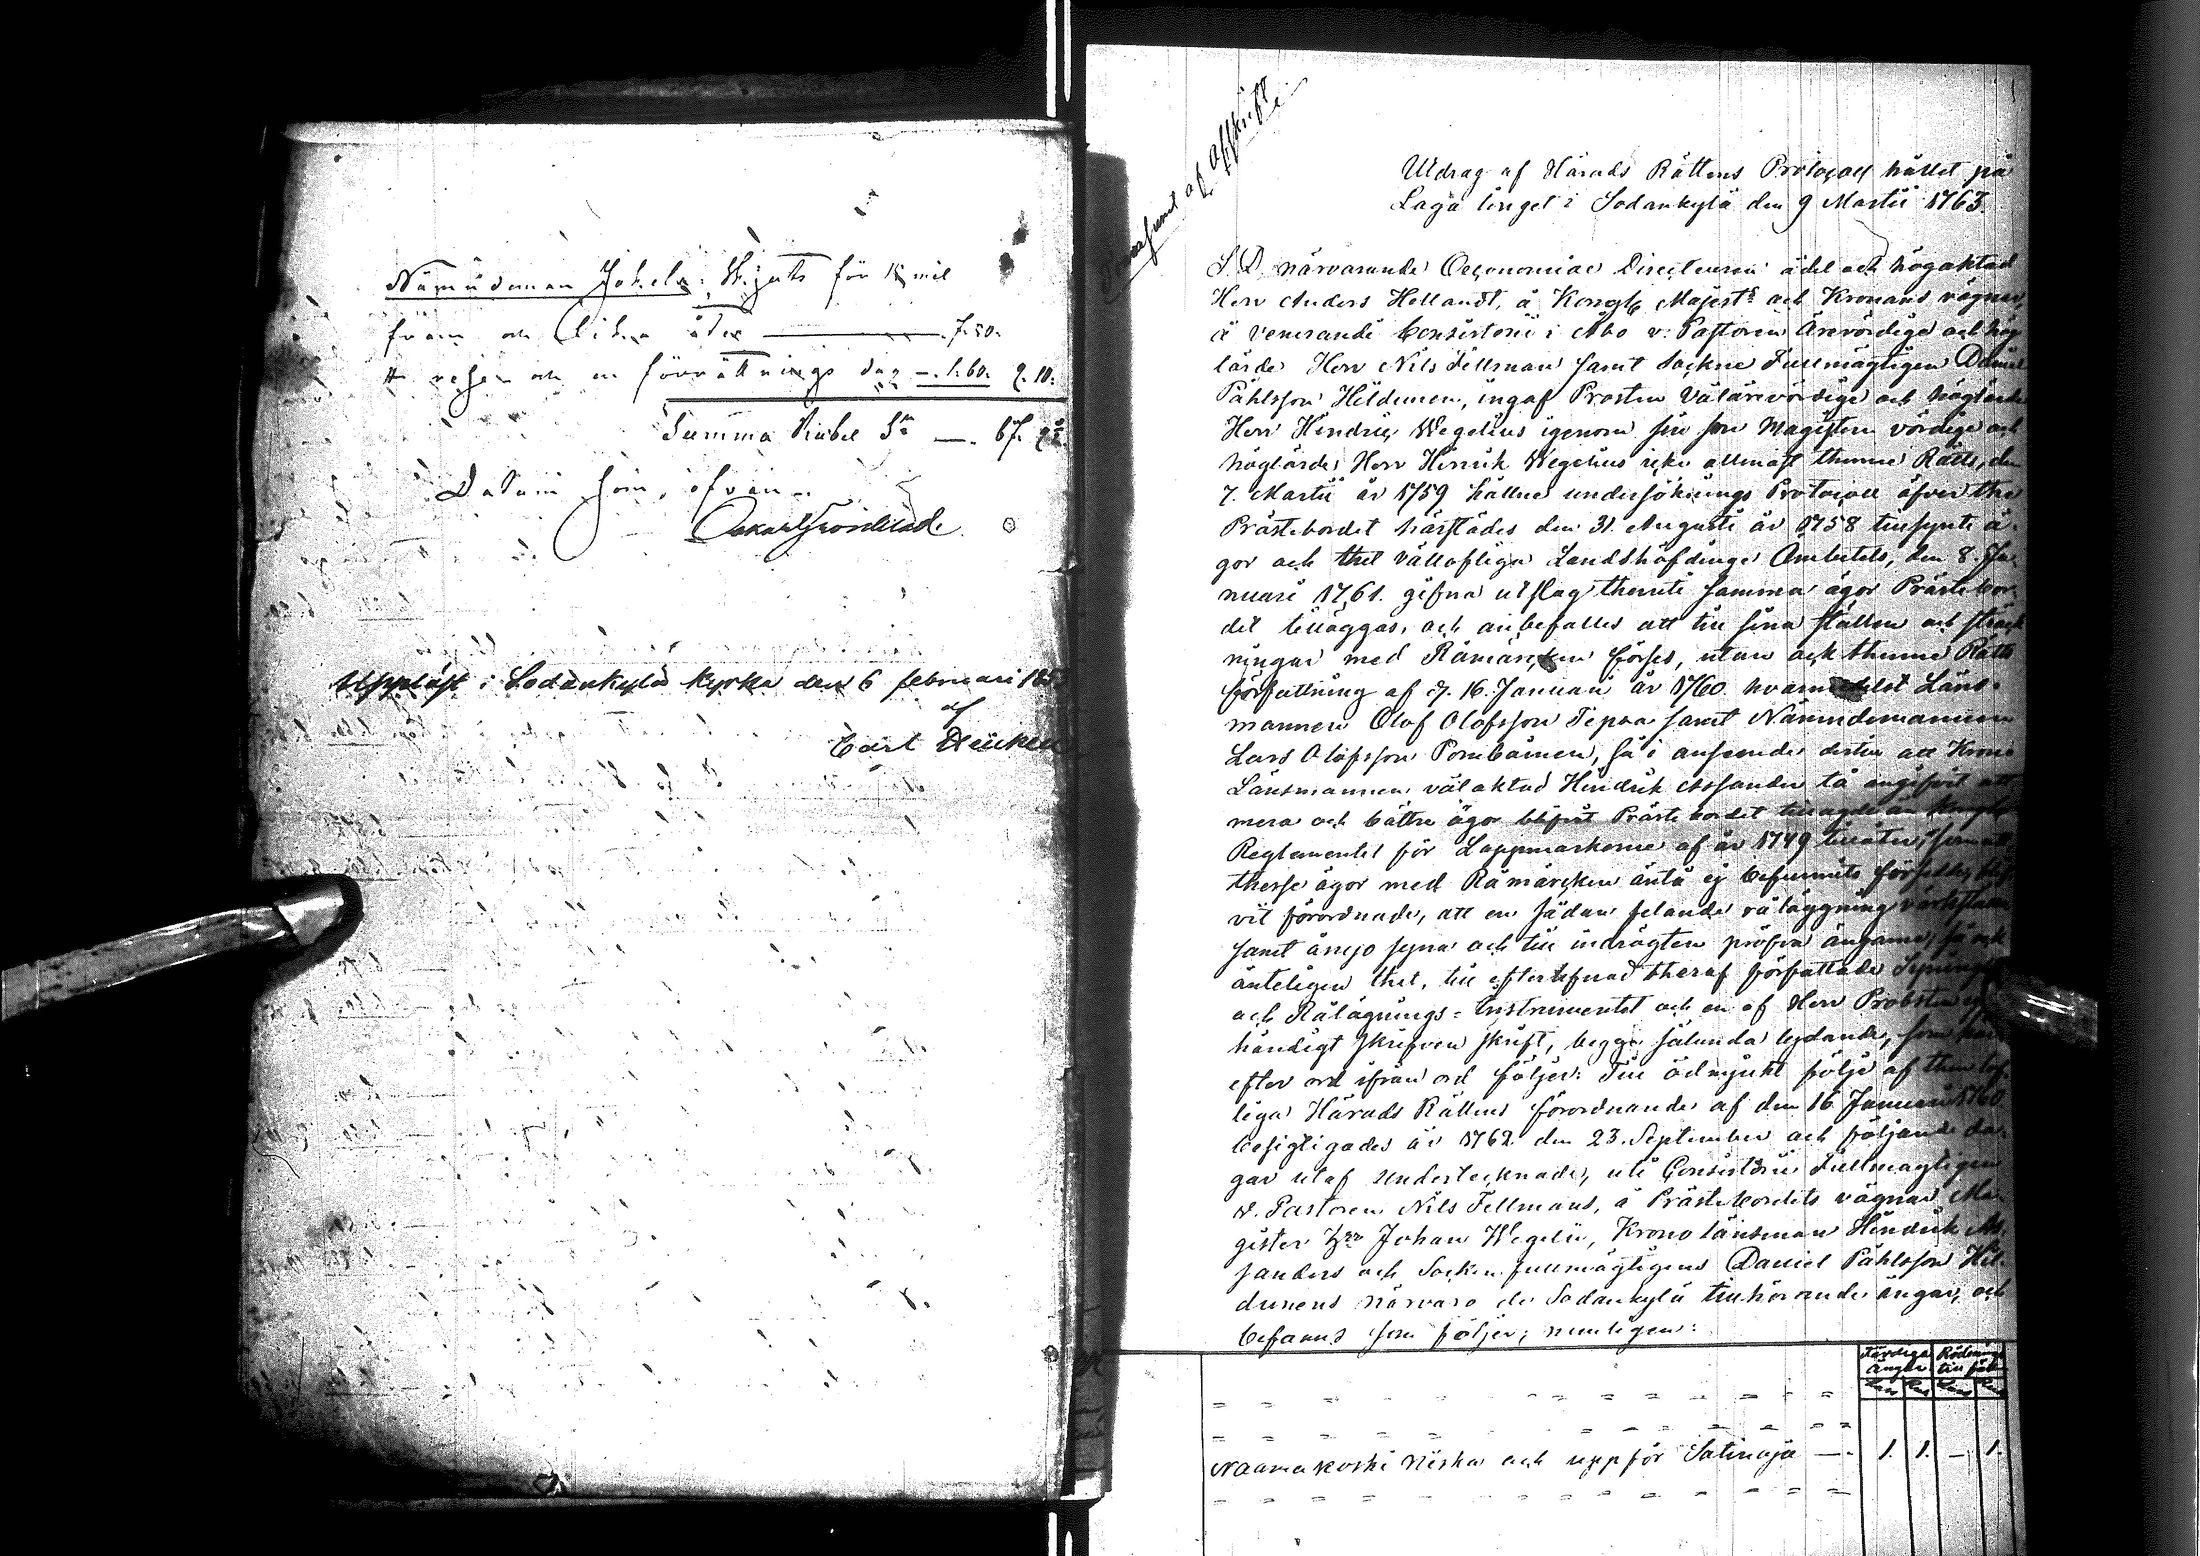 Nämndeman Jokela: Skjuts för 15 mil
fram och lika åter — 7.50.
resa och en förrättnings dag —. 1.60. 9. 10.
Summa Rubel S:r —. 67.
Datum som ofvan.
Uppläst i Sodankylä kyrka den 6 februari
af
Carl Heickell
af afskrift
Utdrag af Härads Rättens Protocoll hållet på
Laga tinget i Sodankylä den 9 Martii 1763.
S. D. närvarande Oeconomiae Directeuren ädel och högaktad
Herr Anders Hellandt, å Kongl. Majest:s och Kronans vägnar,
å venerandi Consistorii i Åbo v. Pastoren Ärevördige och hög
lärde Herr Nils Fellman samt Sockne Fullmägtigen Daniel
Påhlsson Hildunen, ingaf Prosten Välärevördige och höglärde
Herr Hindric Wegelius igenom sin son Magistern vördige och
höglärde Herr Henrik Wegelius icke allenast thenne Rätts, den
7. Martii år 1759 hållne undersöknings Protocoll öfver the
Prästebordet härstädes den 31. Augusti år 1758 tillsynte ä-
gor och thet vällofliga Landshöfdinge Ambetets, den 8. Ja-
nuari 1761. gifna utslag theruti samma ägor Prästebor-
det tilläggas, och anbefalles att till sina ställen och sträck
ningar med Råmärcken förses, utan ock thenne Rätts
författning af d. 16. Januari år 1760. hvarmedelst Läns-
mannen Olof Olofsson Tepsa samt Nämndemannen
Lars Olofsson Pombainen, så i anseende dertill att Krono
Länsmannen välaktad Hindrik Assander tå angifvit att
mera och bättre ägor blifvit Prästebordet tillagde än Kongl.
Reglementet för Lappmarkerne af år 1749 tillåter, som ock
thesse ägor med Råmärcken ännu ej befunnits försedde, blif-
vit förordnade, att en sådan felande råläggning värkställa
samt å nyo syna och till indrägten pröfva ängarne, så ock
änteligen thet, till efterlefnad theraf författade Synings
och Rålägnings-Instrumentet och en af Herr Probsten egen
händigt skrifven skrift, begge sålunda lydande, som här
efter ord ifrån ord följer: Till ödmjukt följe af then lof
liga Härads Rättens förordnande af den 16 Januarii 1760
besigtigades år 1762 den 23. September och följande da-
gar utaf undertecknade, uti Consistorii Fullmägtigen
v. Pastoren Nils Fellmans, å Prästebordets vägnar Ma-
gister H:rr Johan Wegelii, Krono länsman Hindrik As-
sanders och Socken fullmägtigens Daniel Påhlsson Hil-
dunens närvaro de Sodankylä tillhörande ängar, och
befanns som följer; nemligen:
Färdiga Rödnings
ängar till
Naamakoski Niska och uppför Satinoja —. 1. 1. — 1.